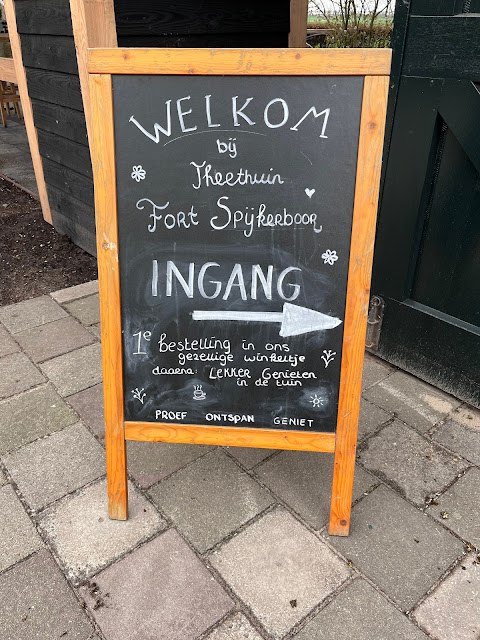 WELKOM
bij
Theetuin
Fort Spijkerboor
INGANG
1e bestelling in ons
gezellige winkeltje
daarna: LEKKER Genieten
in de tuin
PROEF ONTSPAN GENIET